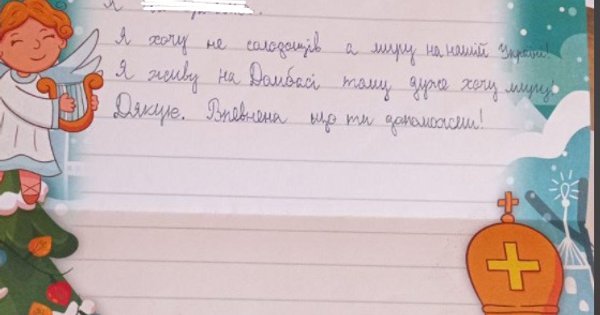 Я
Я хочу не солодощів а миру на нашій Україні!
Я живу на Домбасі тому дуже хочу миру!
Дякую. Впевнена що ти допоможеш!